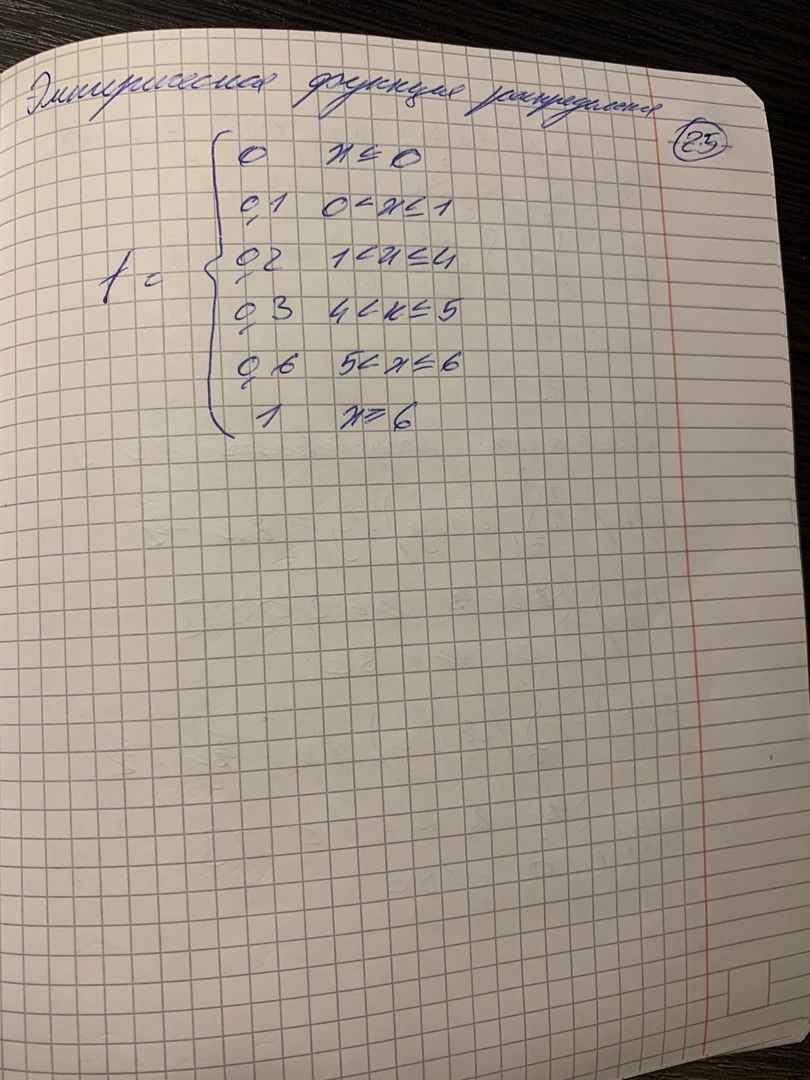 Эмпирическая функция распределения
25
0 x ≤ 0
0,1 0 < x ≤ 1
0,2 1 < x ≤ 4
f =
0,3 4 < x ≤ 5
0,6 5 < x ≤ 6
1 x ≥ 6